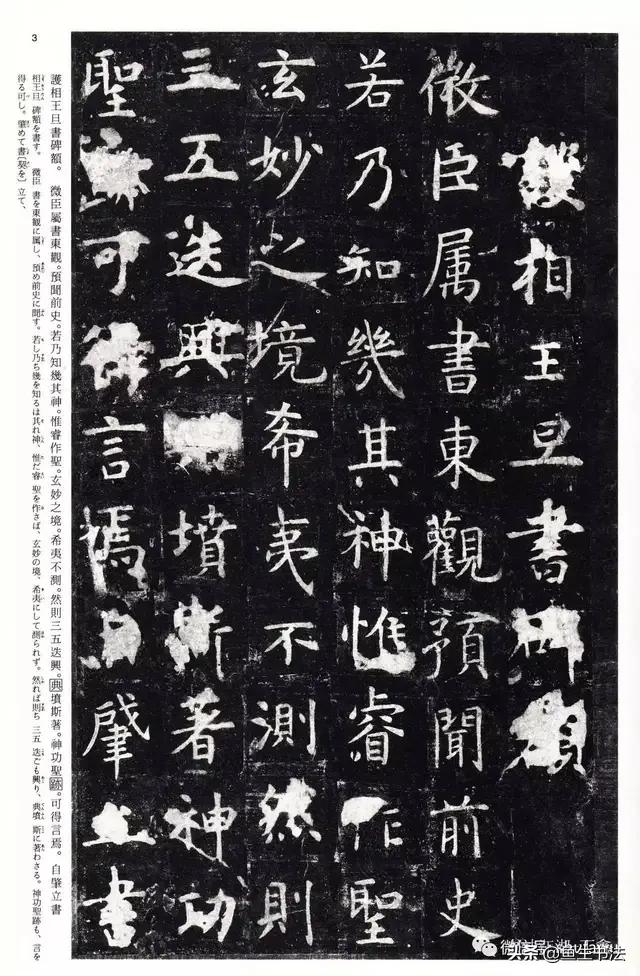 護相王旦書碑額
微臣属書東觀預聞前史
若乃知幾其神惟睿作聖
玄妙之境希夷不測然則
三五迭興墳斯著神功
聖跡可得言焉自肇立書
3
護相王旦書碑額。 微臣屬書東觀。預聞前史。若乃知幾其神。惟睿作聖。玄妙之境。希夷不測。然則三五迭興。典墳斯著。神功聖跡。可得言焉。 自肇立書
相王旦 碑額を書す。 微臣 書を東観に属し、預め前史に聞す。若し乃ち幾を知るは其れ神、惟だ睿 聖を作さば、玄妙の境、希夷にして測られず。然れば則ち 三五 迭ごも興り、典墳 斯に著わさる。神功聖跡も、言を
得る可し。肇めて書〔契を〕立て、
头条 @鱼生书法